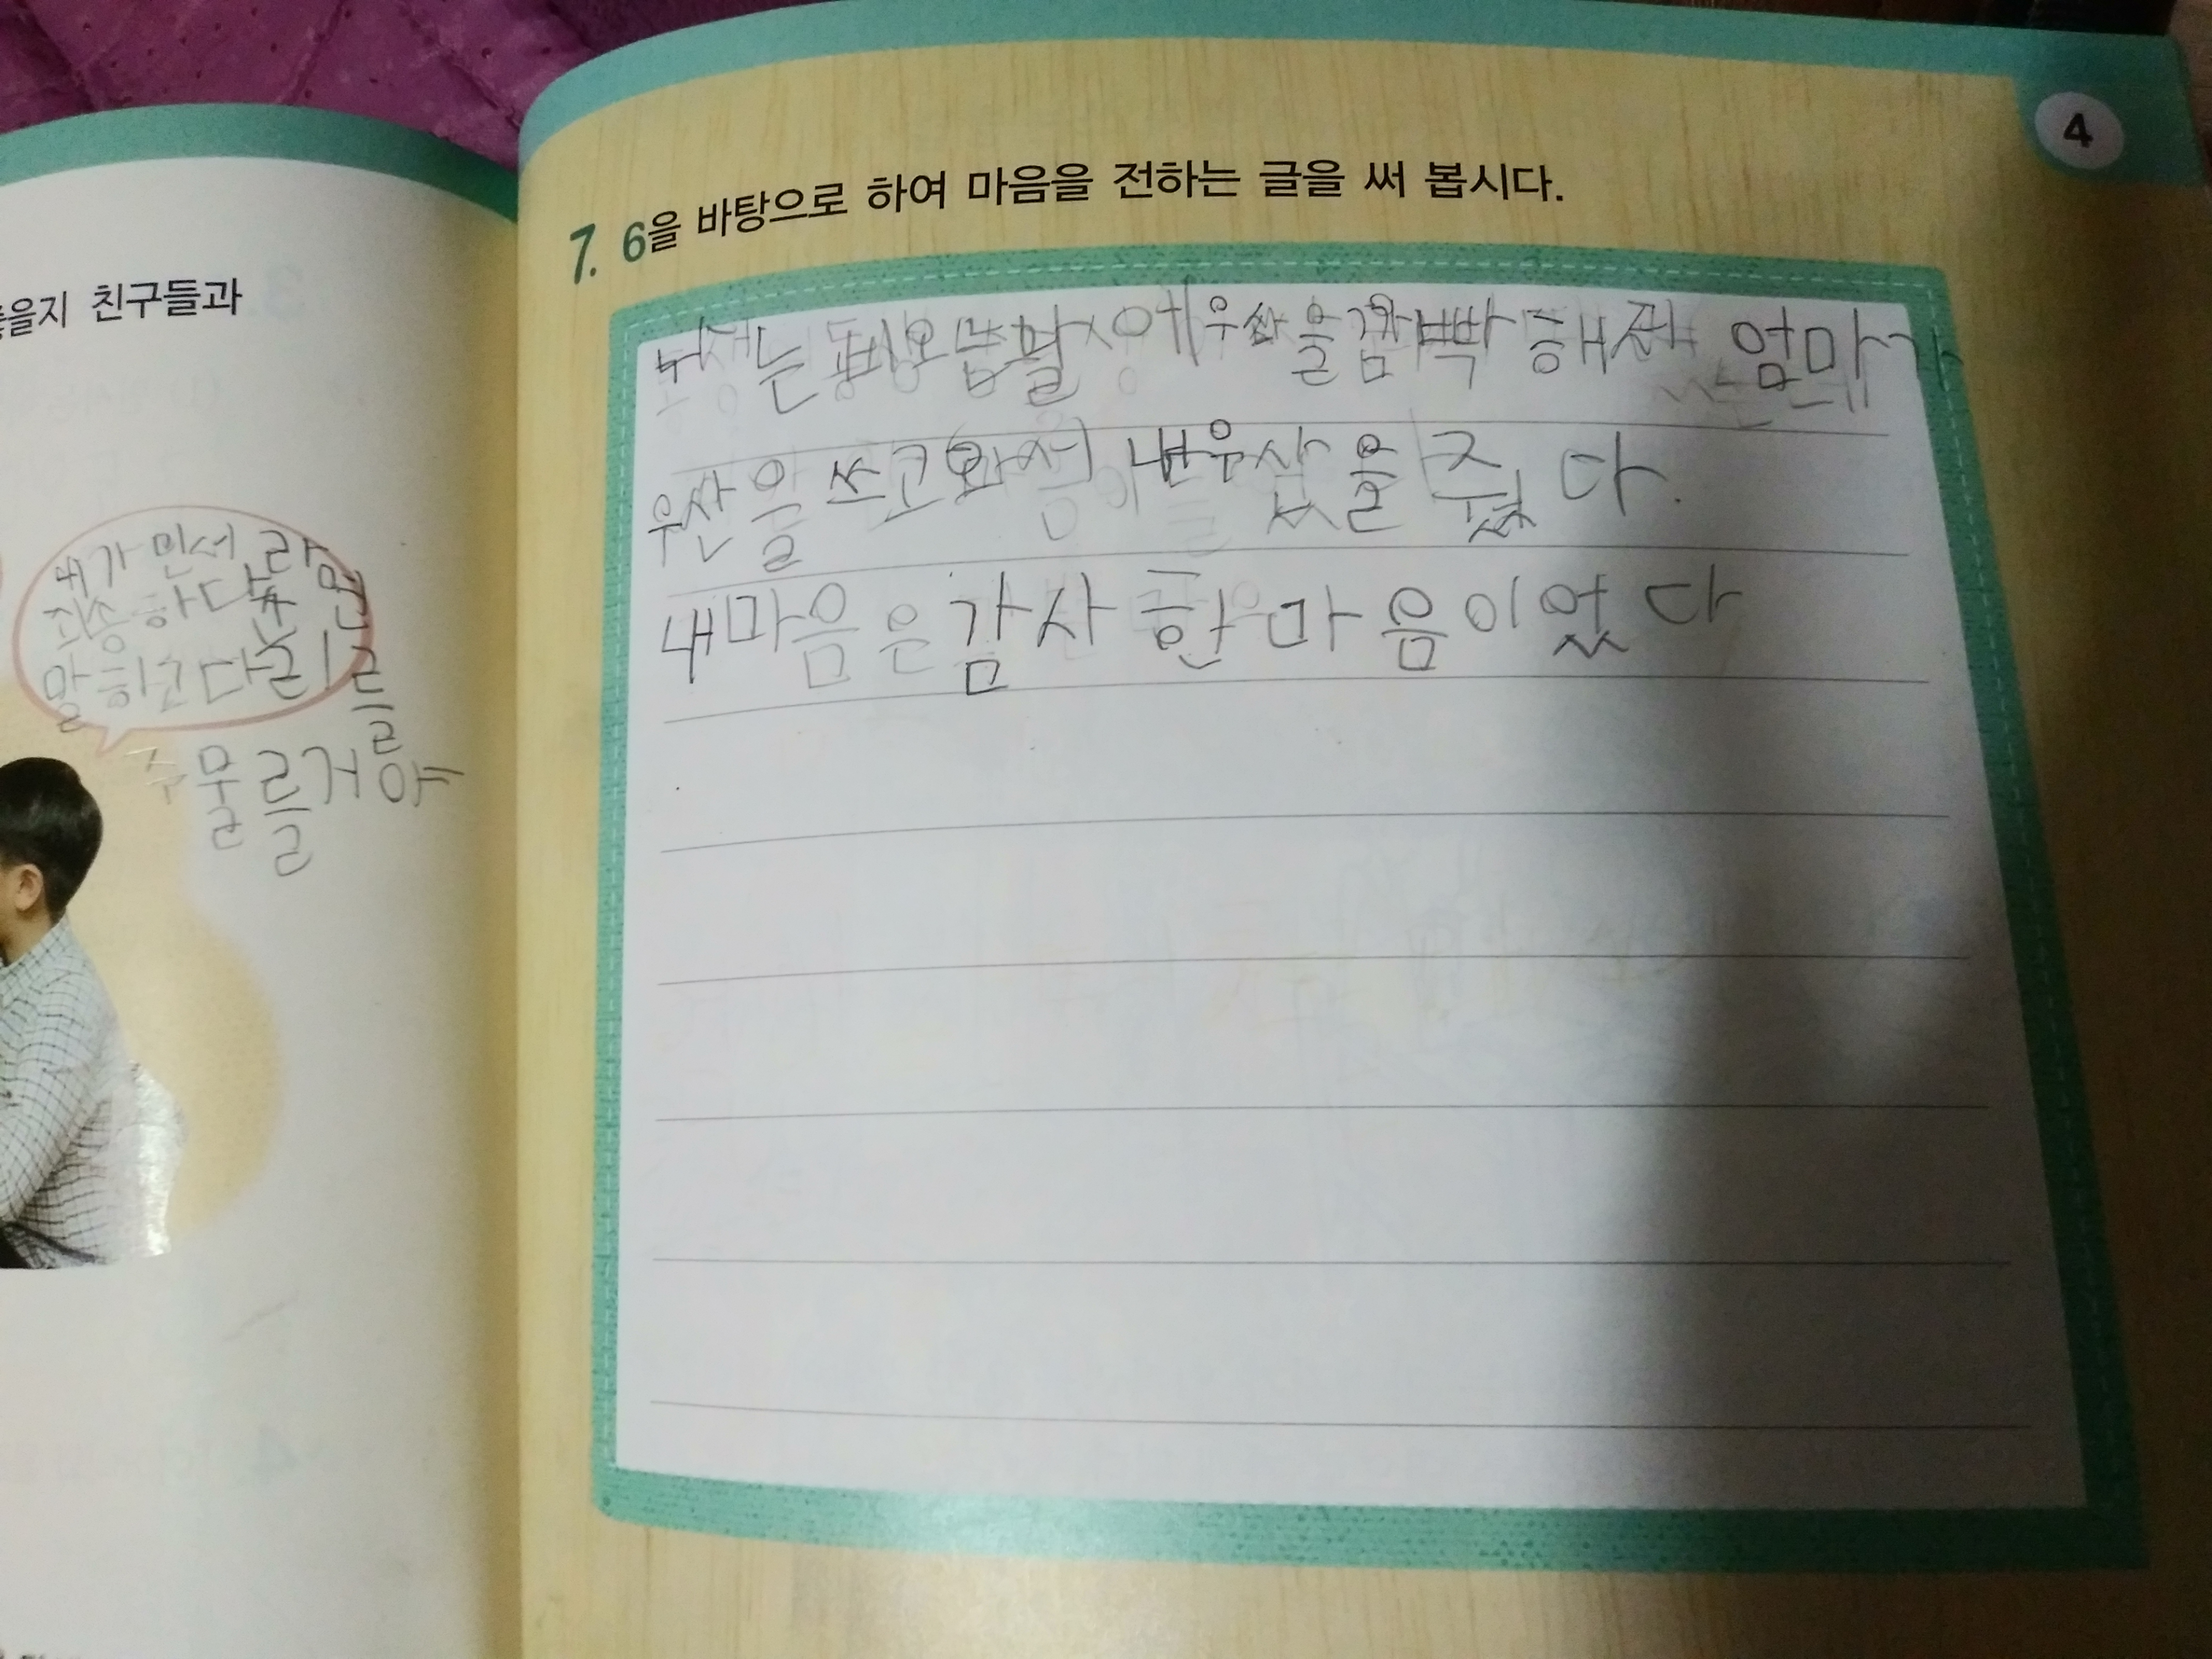 4
7. 6을 바탕으로 하여 마음을 전하는 글을 써 봅시다.
을지 친구들과
우산을 깜빡 해 엄마가
우산을 쓰고와서 내우산을 줬다.
내마음은감사한마음이었다
내가 민서라면
죄송하다
말하고다리를
주물를거야